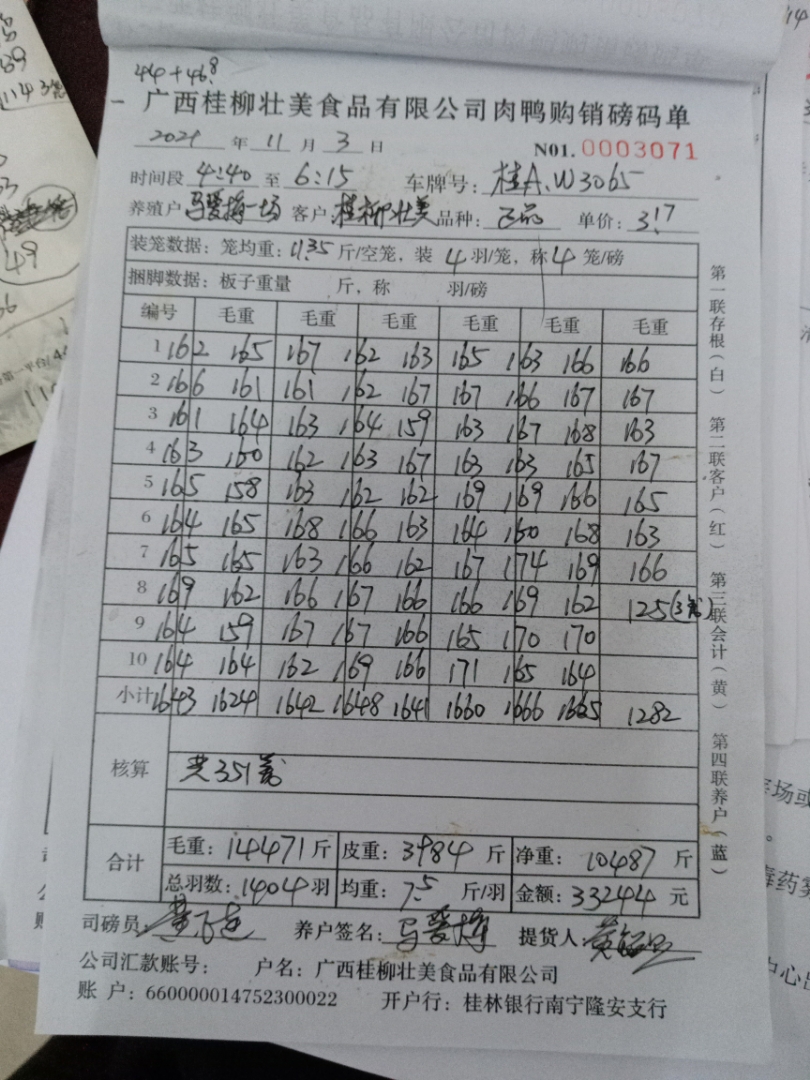 44+46.8
广西桂柳壮美食品有限公司肉鸭购销磅码单
2021 年 11 月 3 日 N01. 0003071
时间段 4:40 至 6:15 车牌号: 桂A.W3065
养殖户 马爱梅一场 客户: 桂柳壮美 品种: 正品 单价: 3.17
装笼数据: 笼均重: 11.35 斤/空笼, 装 4 羽/笼, 称 4 笼/磅
捆脚数据: 板子重量 斤, 称 羽/磅
编号 毛重 毛重 毛重 毛重 毛重 毛重
1 162 165 167 162 163 165 163 166 166
2 166 161 161 162 167 167 166 167 167
3 161 164 163 164 159 163 167 168 163
4 163 160 162 163 167 163 163 165 167
5 165 158 163 162 162 169 169 166 165
6 164 165 168 166 163 164 160 168 163
7 165 165 163 166 162 167 174 169 166
8 169 162 166 167 166 166 169 162 125(3笼)
9 164 159 167 167 166 165 170 170
10 164 164 162 169 166 171 165 164
小计 1643 1624 1642 1648 1641 1660 1666 1665 1282
核算 共351笼
合计 毛重: 14471 斤 皮重: 3984 斤 净重: 10487 斤
总羽数: 1404 羽 均重: 7.5 斤/羽 金额: 33244 元
司磅员 养户签名: 马爱梅 提货人
公司汇款账号: 户名: 广西桂柳壮美食品有限公司
账 户: 660000014752300022 开户行: 桂林银行南宁隆安支行
第一联存根(白) 第二联客户(红) 第三联会计(黄) 第四联养户(蓝)